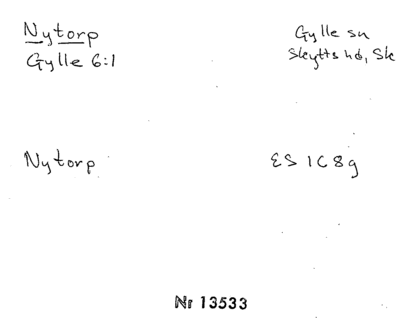 Nytorp
Gylle sn
Gylle 6:1
Skytts hd, Sk
Nytorp
ES 1C8g
Nr 13533